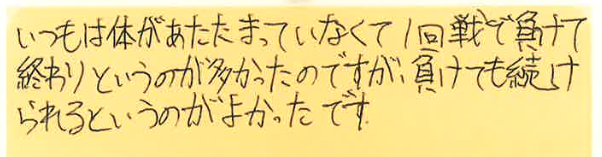 いつもは体があたたまっていなくて1回戦で負けて
終わりというのが多かったのですが、負けても続け
られるというのがよかったです。